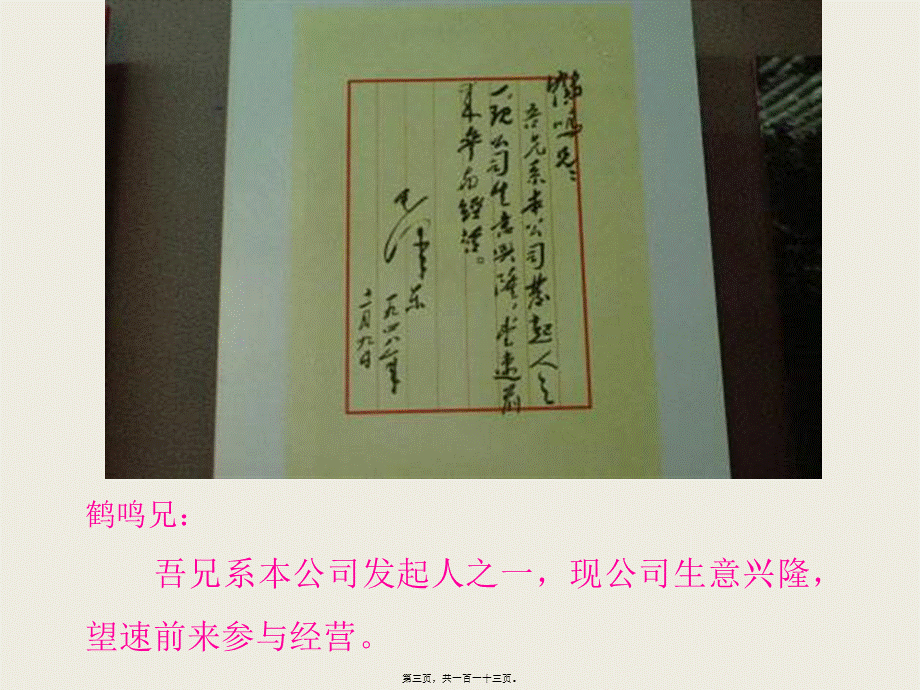 鹤鸣兄：
吾兄系本公司发起人之
一，现公司生意兴隆，望速前
来参与经营。
毛泽东
一九四八年
十一月九日
鹤鸣兄：
吾兄系本公司发起人之一，现公司生意兴隆，
望速前来参与经营。
第三页，共一百一十三页。